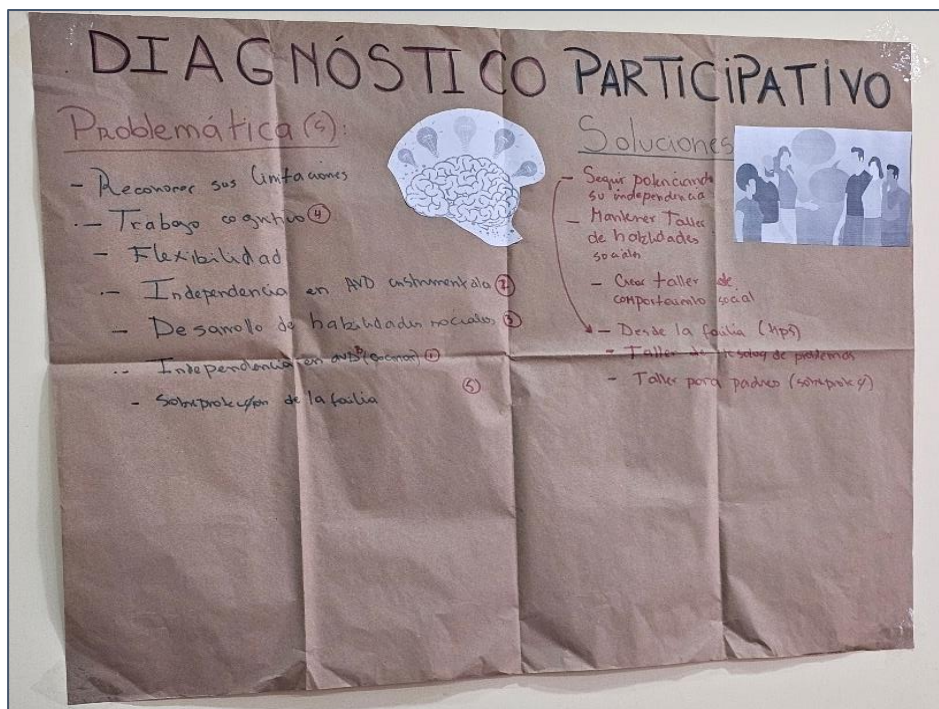 DIAGNÓSTICO PARTICIPATIVO
Problemática(s):
- Reconocer sus limitaciones
- Trabajo cognitivo ④
- Flexibilidad
- Independencia en AVD instrumentala ②
- Desarrollo de habilidades sociales ③
- Independencia en AVD (cocinar) ①
- Sobreprotección de la failia ⑤
Soluciones
- Seguir potenciando
su independencia
- Mantener Taller
de habilidades
sociales
- Crear taller de
comportamiento social
- Desde la failia (Hps)
- Taller de resoluç de problemas
- Taller para padres